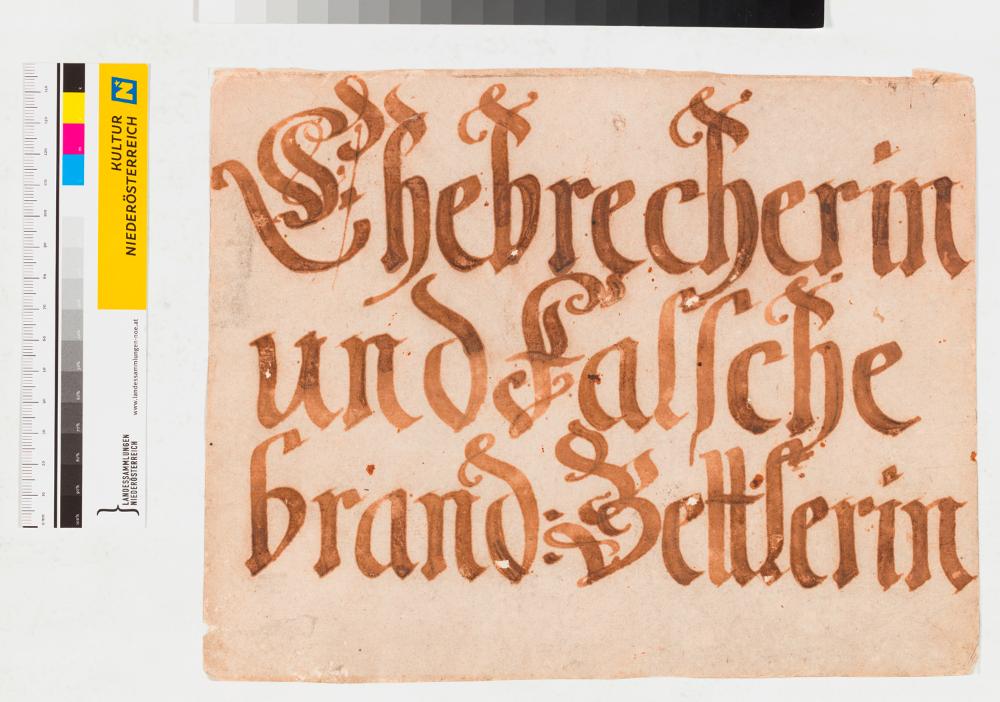 Ehebrecherin
und Falsche
brand-Bettlerin
KULTUR
NIEDERÖSTERREICH
www.landessammlungen-noe.at
LANDESSAMMLUNGEN
NIEDERÖSTERREICH